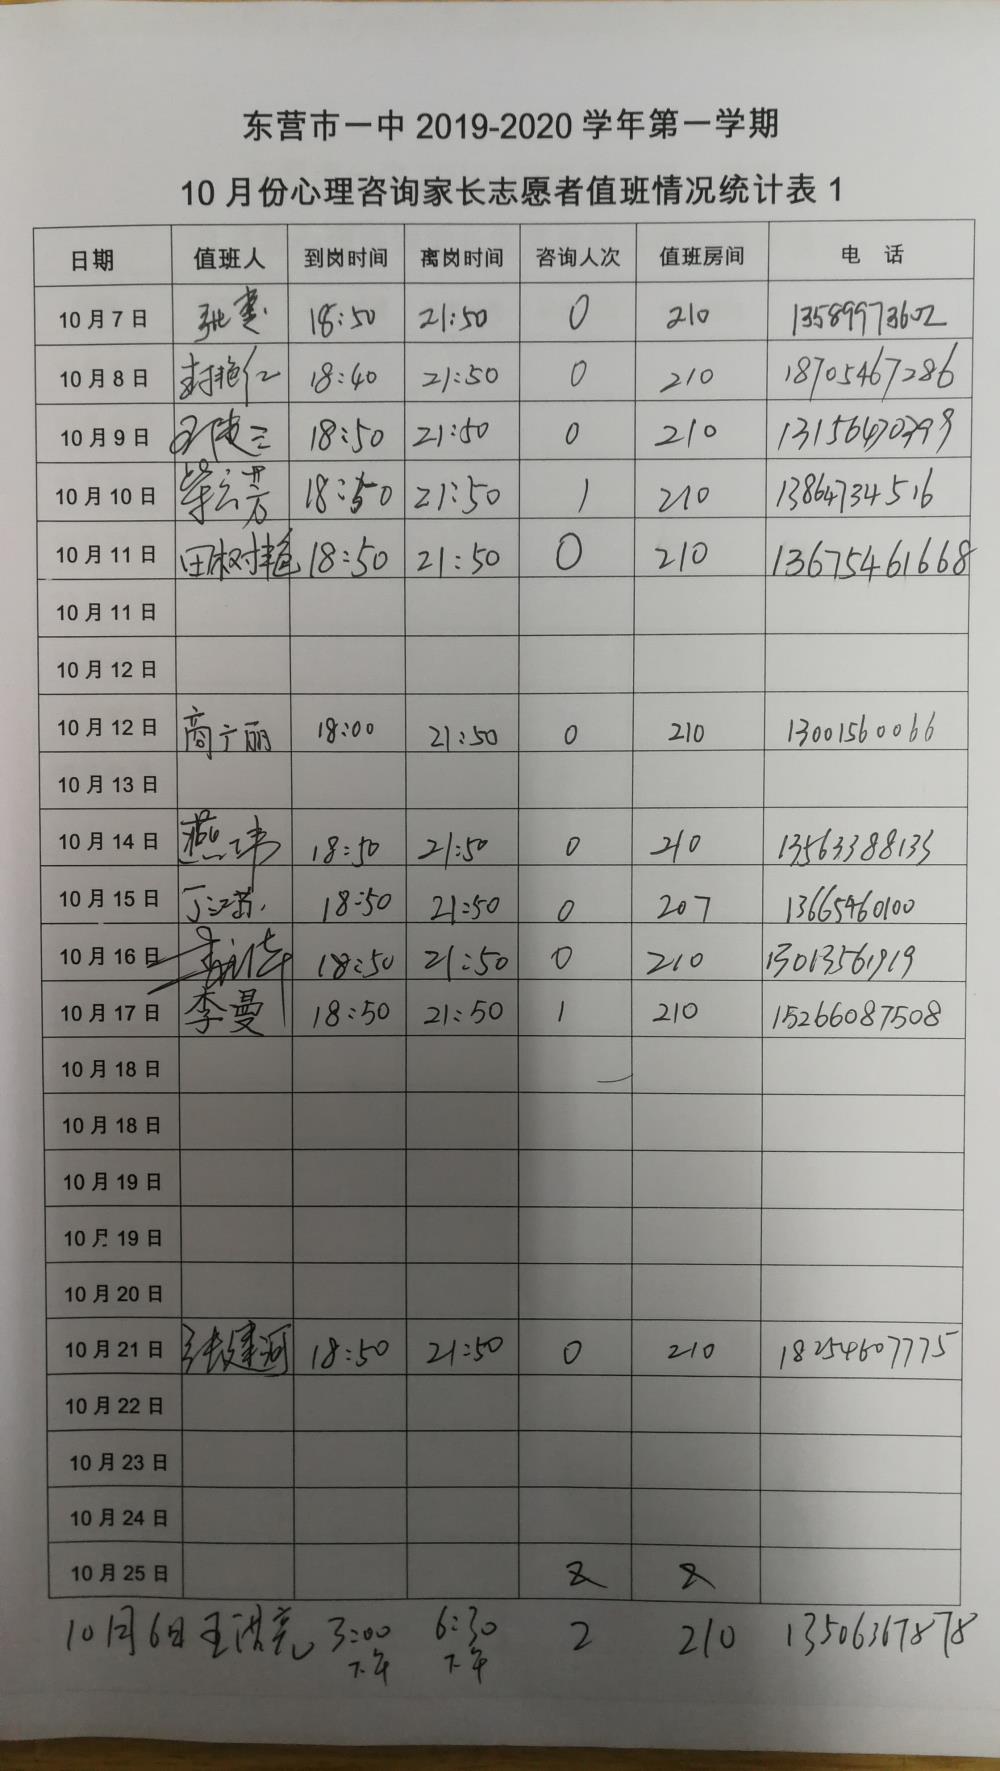 东营市一中 2019-2020 学年第一学期
10 月份心理咨询家长志愿者值班情况统计表 1
日期 值班人 到岗时间 离岗时间 咨询人次 值班房间 电 话
10 月 7 日 18:50 21:50 0 210 13589973602
10 月 8 日 封艳仁 18:40 21:50 0 210 18705467286
10 月 9 日 18:50 21:50 0 210
10 月 10 日 18:50 21:50 1 210 13864734516
10 月 11 日 田树艳 18:50 21:50 0 210 13675461668
10 月 11 日
10 月 12 日
10 月 12 日 商广丽 18:00 21:50 0 210 13001560066
10 月 13 日
10 月 14 日 燕玮 18:50 21:50 0 210 13563388133
10 月 15 日 18:50 21:50 0 207 13665460100
10 月 16 日 18:50 21:50 0 210 13013561919
10 月 17 日 李曼 18:50 21:50 1 210 15266087508
10 月 18 日
10 月 18 日
10 月 19 日
10 月 19 日
10 月 20 日
10 月 21 日 张建河 18:50 21:50 0 210 18254607775
10 月 22 日
10 月 23 日
10 月 24 日
10 月 25 日
10月6日 王洪亮 3:00 下午 6:30 下午 2 210 13506367878